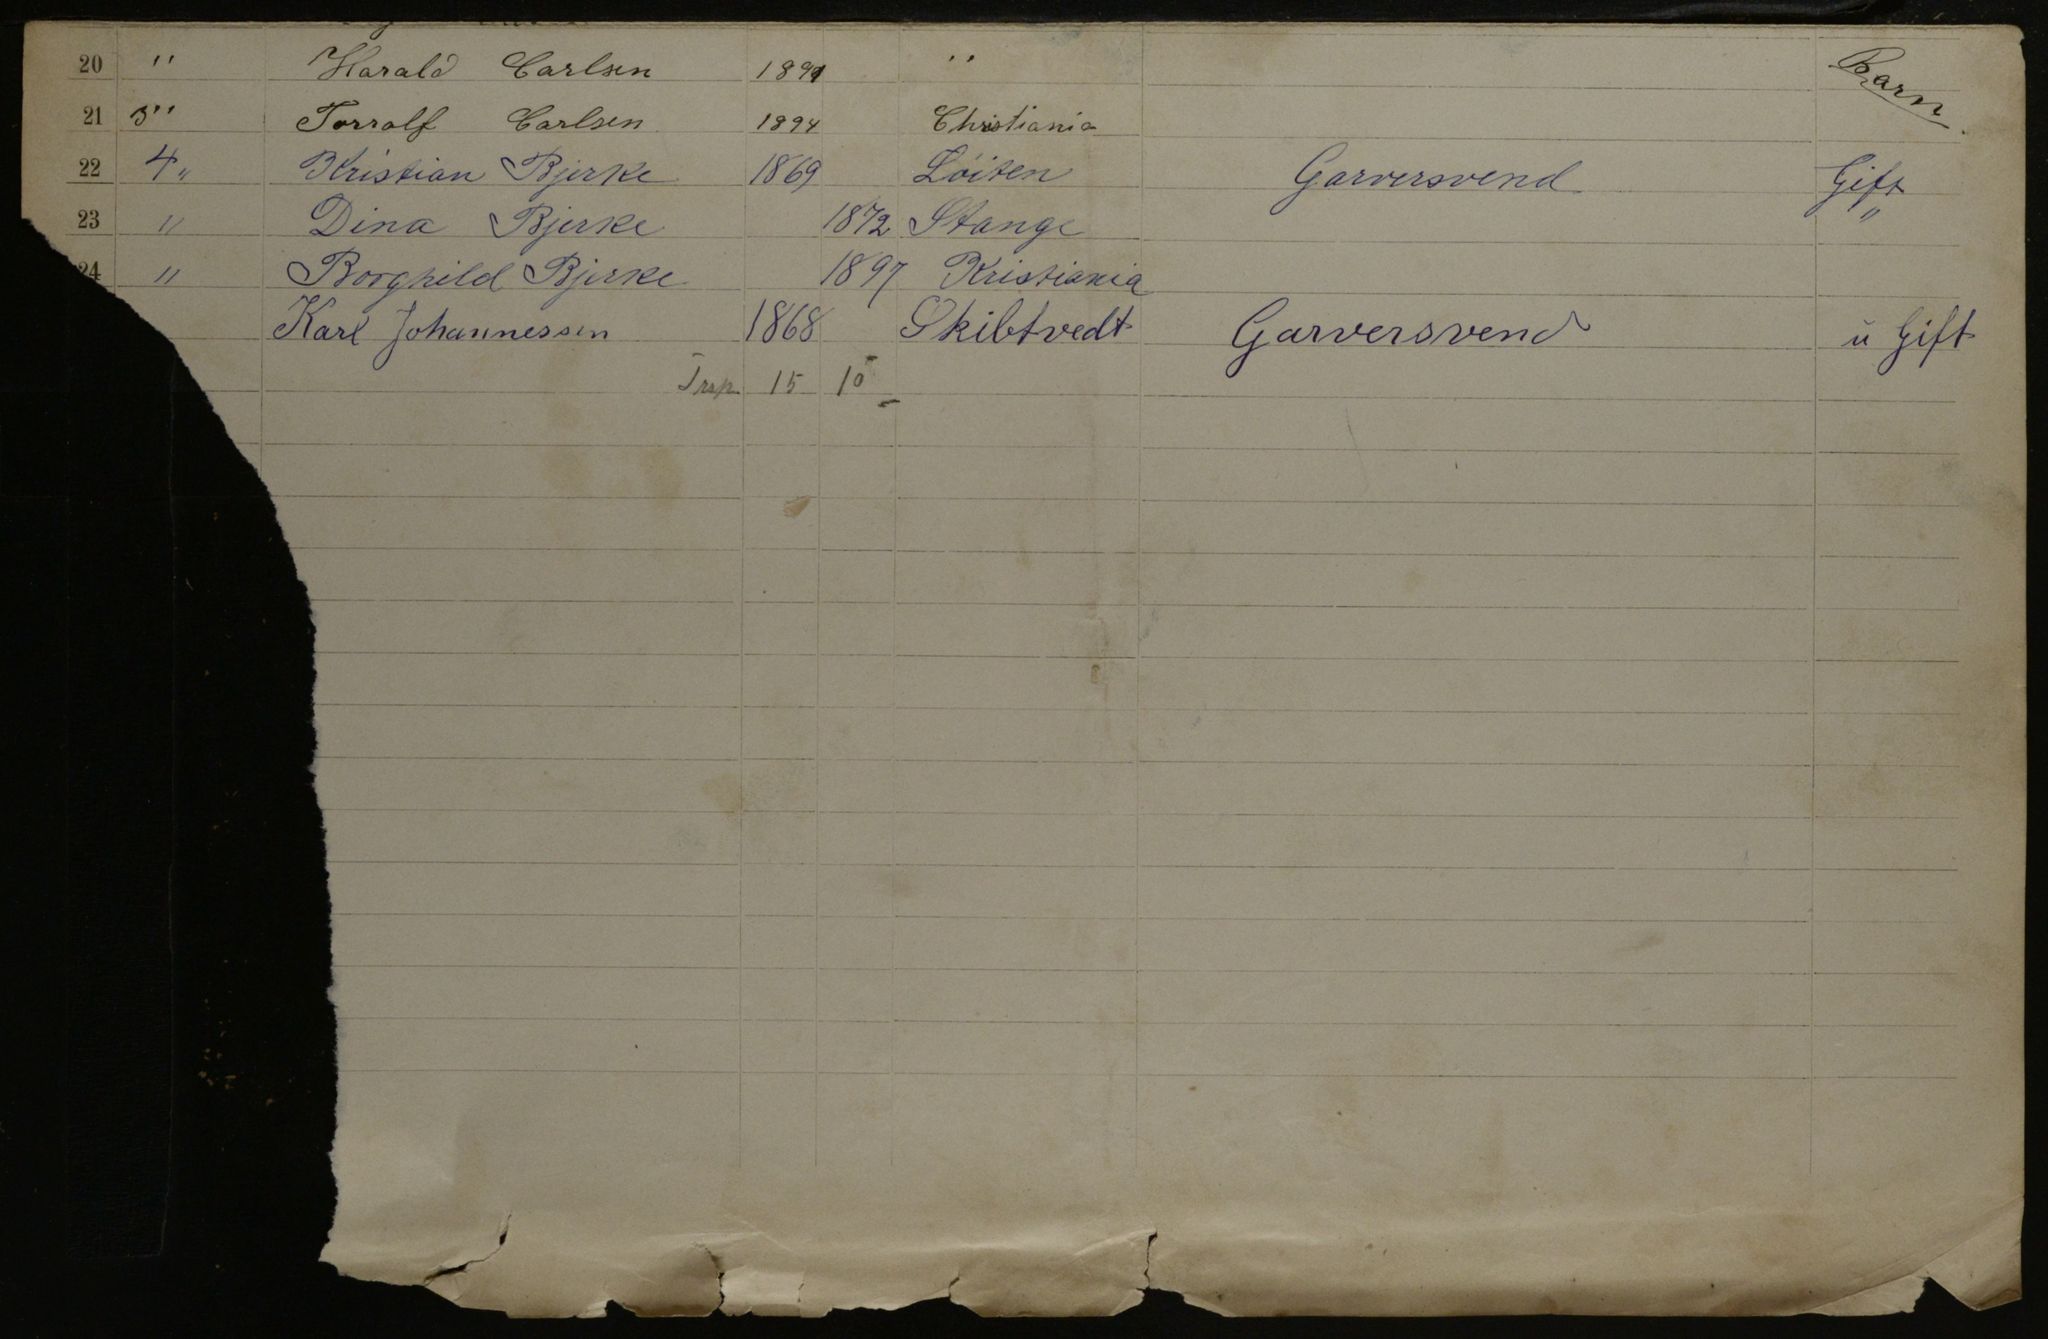 20 " Harald Carlsen 1891 " Barn
21 3" Torralf Carlsen 1894 Christiania
22 4 " Kristian Bjerke 1869 Löiten Garversvend Gift
23 " Dina Bjerke 1872 Stange "
24 " Borghild Bjerke 1897 Kristiania
Karl Johannessen 1868 Skibtvedt Garversvend ü Gift
Trsp. 15 10